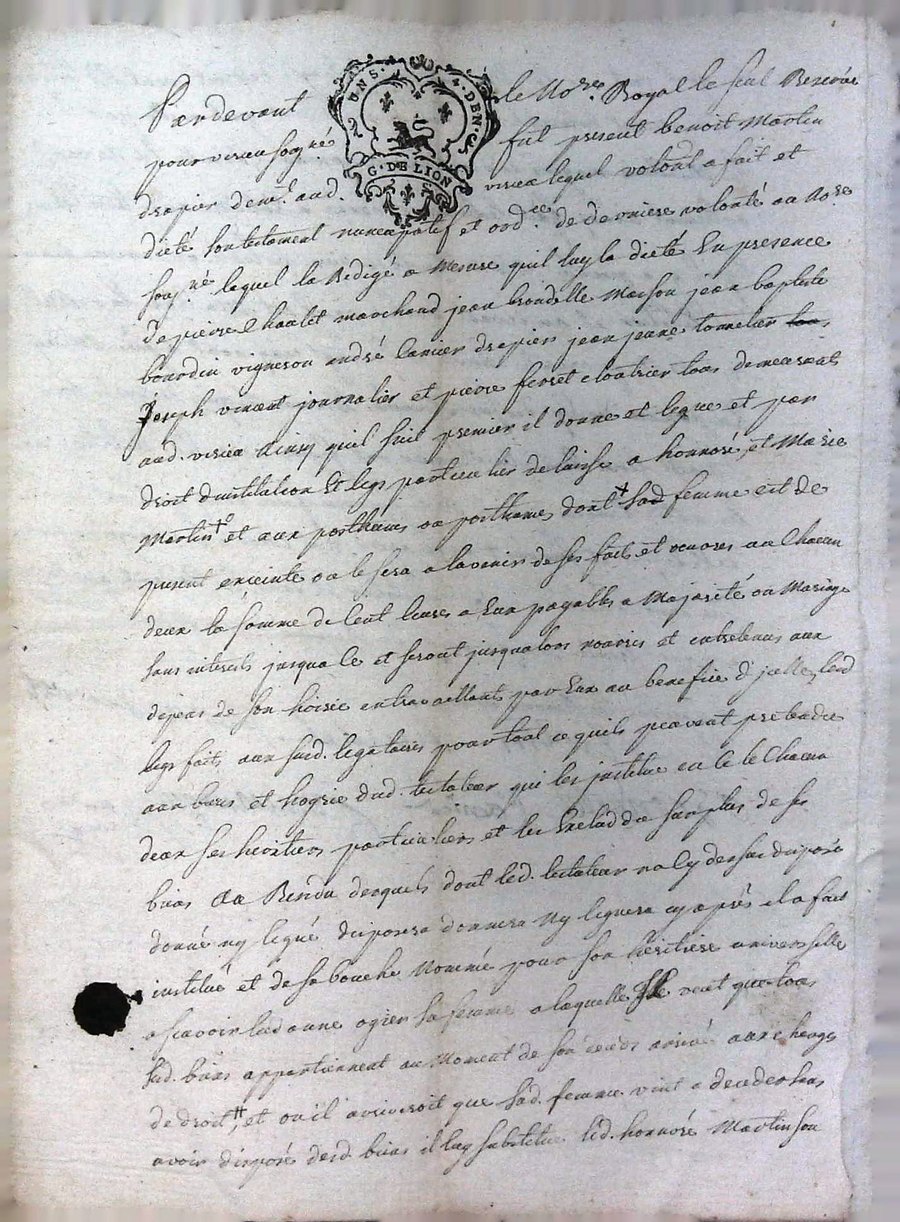 Pardevant le No.re Royal le seul Reservé
pour virieu soug.né fut present benoit Martin
drapier dem.t aud. virieu lequel volont. a fait et
dicté son testament nuncupatif et ord.ce de derniere volonté au No.re
soug.né lequel la Redigé a Mesure quil luy la dicté En presence
de pierre Chaulet marchand jean brondelle Masson jean baptiste
bourdin vigneron andré Carrier drapier jean jeune tonnelier
Joseph vincent journalier et pierre ferret cloutrier tous demeurants
aud. virieu Ainsy quil suit premier il donne et legue et par
droit dinstitution Et legs particulier delaisse a honnoré, et Marie
Martin + et aux posthume ou posthumes dont + sad femme est de
present enceinte ou le sera a lavenir de ses faits et oeuvres a un Chacun
deux la somme de Cent livres a Eux payables a Majorité ou Mariage
sans interests jusqua ce et seront jusqualors nouris et entretenus aux
depens de son hoirie en travaillants par Eux au benefice d'jcelle, lesd
legs faits aux susd. legataires pour tout ce quils peuvent pretendre
aux biens et hoyrie dud. testateur qui les jnstitue en ce le Chacun
deux ses heritiers particuliers et les Exclud du surplus de ses
biens Au Residu desquels dont led. testateur na Cy dessus disposé
donné ny legué disposera donnera Ny leguera cy apres il a fait
institué et de sa bouche Nommée pour son heritiere universelle
a scavoir lad anne ogier sa femme a laquelle Il veut que tous
sesd. biens appartiennent au Moment de son deces arrivé aux charges
de droit, ++ et ou il arriveroit que sad. femme vint a deceder sans
avoir disposé desd. biens il luy substitue led. honnoré Martin son
2 UNS. 4. DEN
G. DE LION